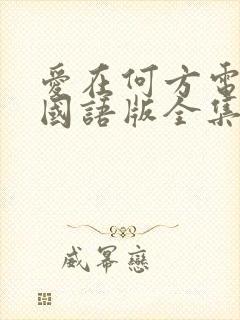 愛在何方電
國語版全集
威幂戀